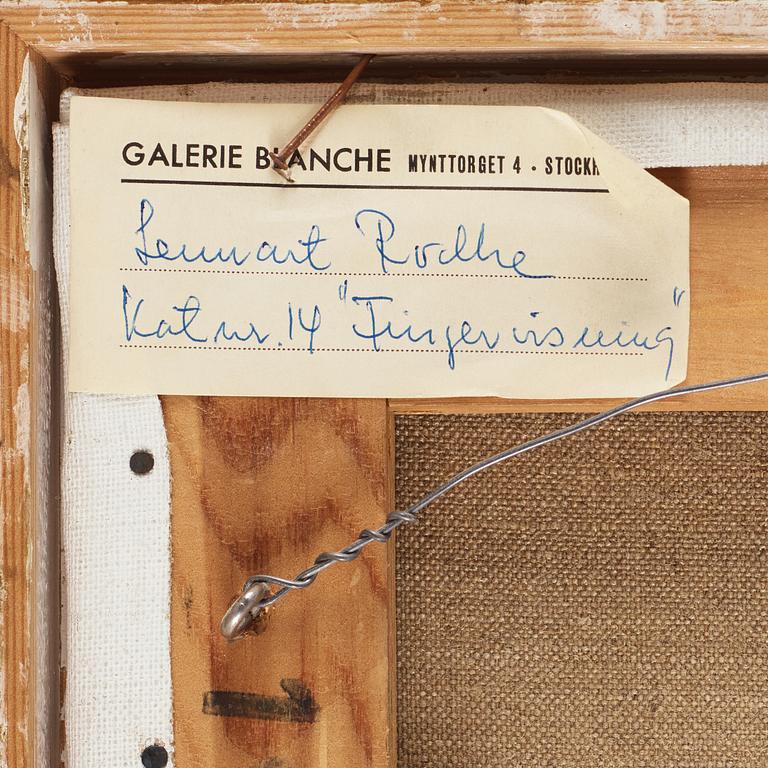 GALERIE BLANCHE MYNTTORGET 4 · STOCKH
Lennart Rodhe
Kat nr. 14 "Fingervisning"